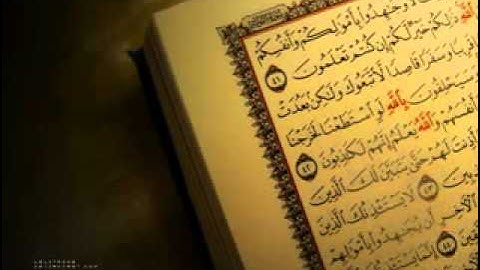 وَجَٰهِدُوا۟ بِأَمْوَٰلِكُمْ وَأَنفُسِكُمْ
ٱللَّهِ ذَٰلِكُمْ خَيْرٌ لَّكُمْ إِن كُنتُمْ تَعْلَمُونَ ٤١
قَرِيبًا وَسَفَرًا قَاصِدًا لَّٱتَّبَعُوكَ وَلَٰكِنۢ بَعُدَتْ
وَسَيَحْلِفُونَ بِٱللَّهِ لَوِ ٱسْتَطَعْنَا لَخَرَجْنَا
أَنفُسَهُمْ وَٱللَّهُ يَعْلَمُ إِنَّهُمْ لَكَٰذِبُونَ ٤٢
أَذِنتَ لَهُمْ حَتَّىٰ يَتَبَيَّنَ لَكَ ٱلَّذِينَ
٤٣ لَا يَسْتَـْٔذِنُكَ ٱلَّذِينَ
ٱلْءَاخِرِ أَن يُجَٰهِدُوا۟ بِأَمْوَٰلِهِمْ
٤٤ إِنَّمَا يَسْتَـْٔذِنُكَ